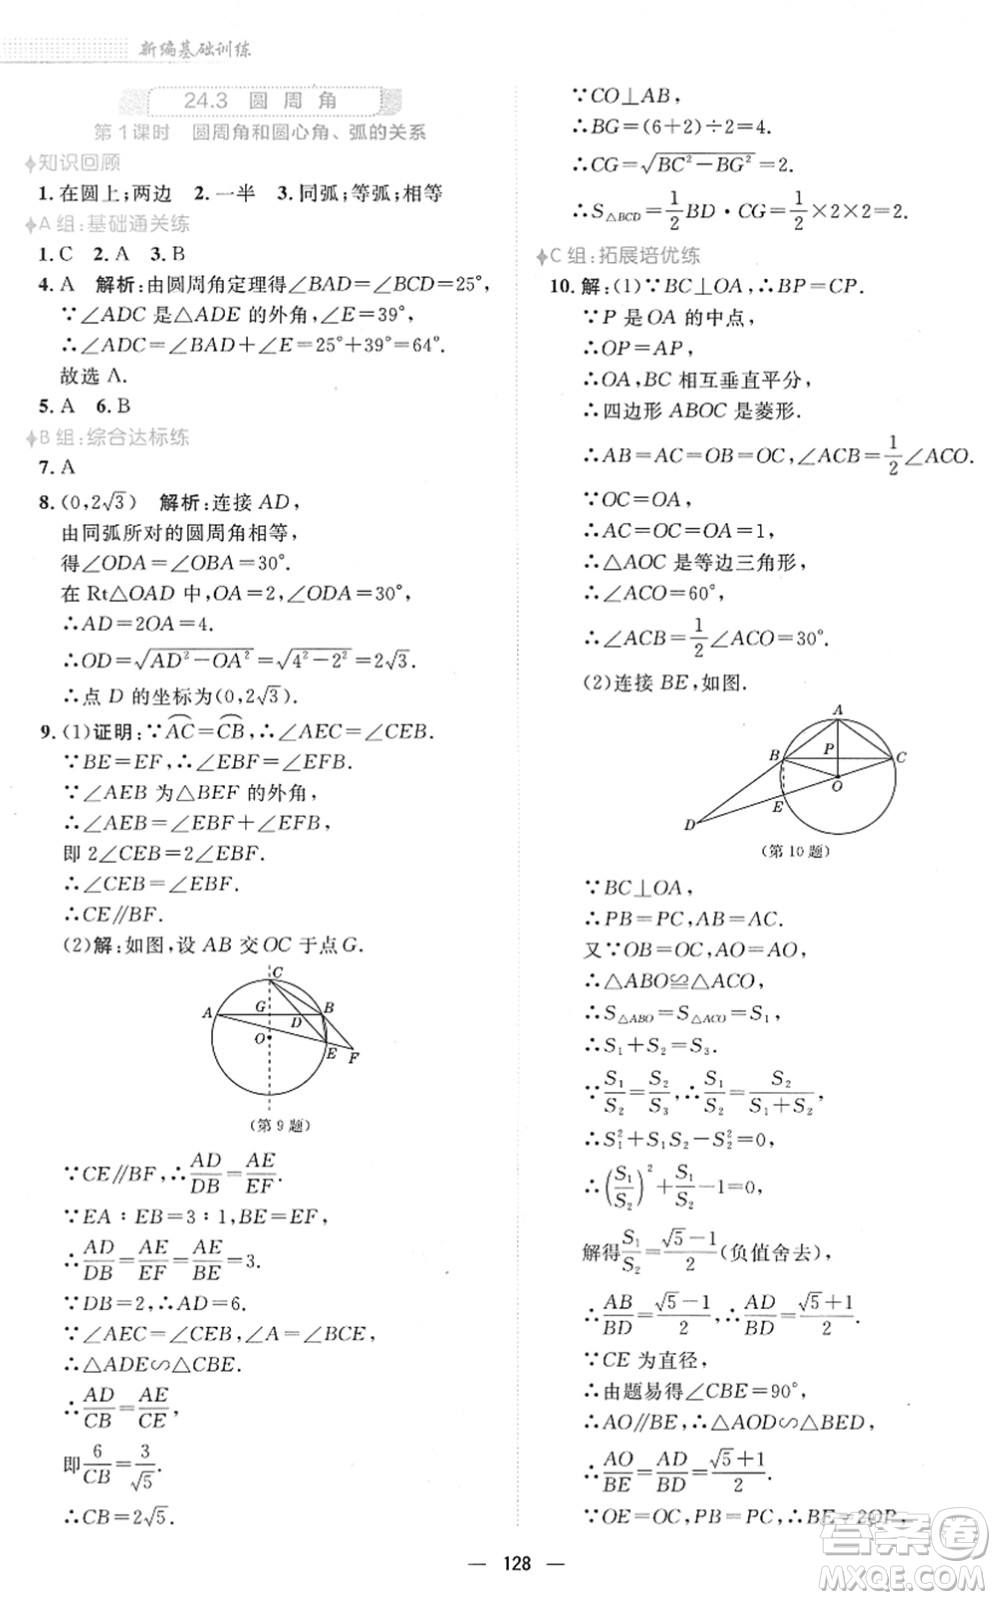 新编基础训练
24.3 圆周角
第1课时 圆周角和圆心角、弧的关系
知识回顾
1. 在圆上;两边 2. 一半 3. 同弧;等弧;相等
A组:基础通关练
1. C 2. A 3. B
4. A 解析:由圆周角定理得∠BAD=∠BCD=25°,
∵∠ADC是△ADE的外角,∠E=39°,
∴∠ADC=∠BAD+∠E=25°+39°=64°.
故选A.
5. A 6. B
B组:综合达标练
7. A
8. (0,2√3) 解析:连接AD,
由同弧所对的圆周角相等,
得∠ODA=∠OBA=30°.
在Rt△OAD中,OA=2,∠ODA=30°,
∴AD=2OA=4.
∴OD=√(AD²-OA²)=√(4²-2²)=2√3.
∴点D的坐标为(0,2√3).
9. (1)证明:∵⌒AC=⌒CB,∴∠AEC=∠CEB.
∵BE=EF,∴∠EBF=∠EFB.
∵∠AEB为△BEF的外角,
∴∠AEB=∠EBF+∠EFB,
即2∠CEB=2∠EBF.
∴∠CEB=∠EBF.
∴CE∥BF.
(2)解:如图,设AB交OC于点G.
C
A G B
D
O
E F
(第9题)
∵CE∥BF,∴AD/DB=AE/EF.
∵EA:EB=3:1,BE=EF,
∴AD/DB=AE/EF=AE/BE=3.
∵DB=2,∴AD=6.
∵∠AEC=∠CEB,∠A=∠BCE,
∴△ADE∽△CBE.
∴AD/CB=AE/CE,
即6/CB=3/√5.
∴CB=2√5.
∵CO⊥AB,
∴BG=(6+2)÷2=4.
∴CG=√(BC²-BG²)=2.
∴S△BCD=1/2BD·CG=1/2×2×2=2.
C组:拓展培优练
10. 解:(1)∵BC⊥OA,∴BP=CP.
∵P是OA的中点,
∴OP=AP,
∴OA,BC相互垂直平分,
∴四边形ABOC是菱形.
∴AB=AC=OB=OC,∠ACB=1/2∠ACO.
∵OC=OA,
∴AC=OC=OA=1,
∴△AOC是等边三角形,
∴∠ACO=60°,
∴∠ACB=1/2∠ACO=30°.
(2)连接BE,如图.
A
B P C
O
E
D
(第10题)
∵BC⊥OA,
∴PB=PC,AB=AC.
又∵OB=OC,AO=AO,
∴△ABO≌△ACO,
∴S△ABO=S△ACO=S₁,
∴S₁+S₂=S₃.
∵S₁/S₂=S₂/S₃,∴S₁/S₂=S₂/(S₁+S₂),
∴S₁²+S₁S₂-S₂²=0,
∴(S₁/S₂)²+S₁/S₂-1=0,
解得S₁/S₂=(√5-1)/2(负值舍去),
∴AB/BD=(√5-1)/2,∴AD/BD=(√5+1)/2.
∵CE为直径,
∴由题易得∠CBE=90°,
∴AO∥BE,∴△AOD∽△BED,
∴AO/BE=AD/BD=(√5+1)/2.
∵OE=OC,PB=PC,∴BE=2OP,
128
答案圈
MXQE.COM